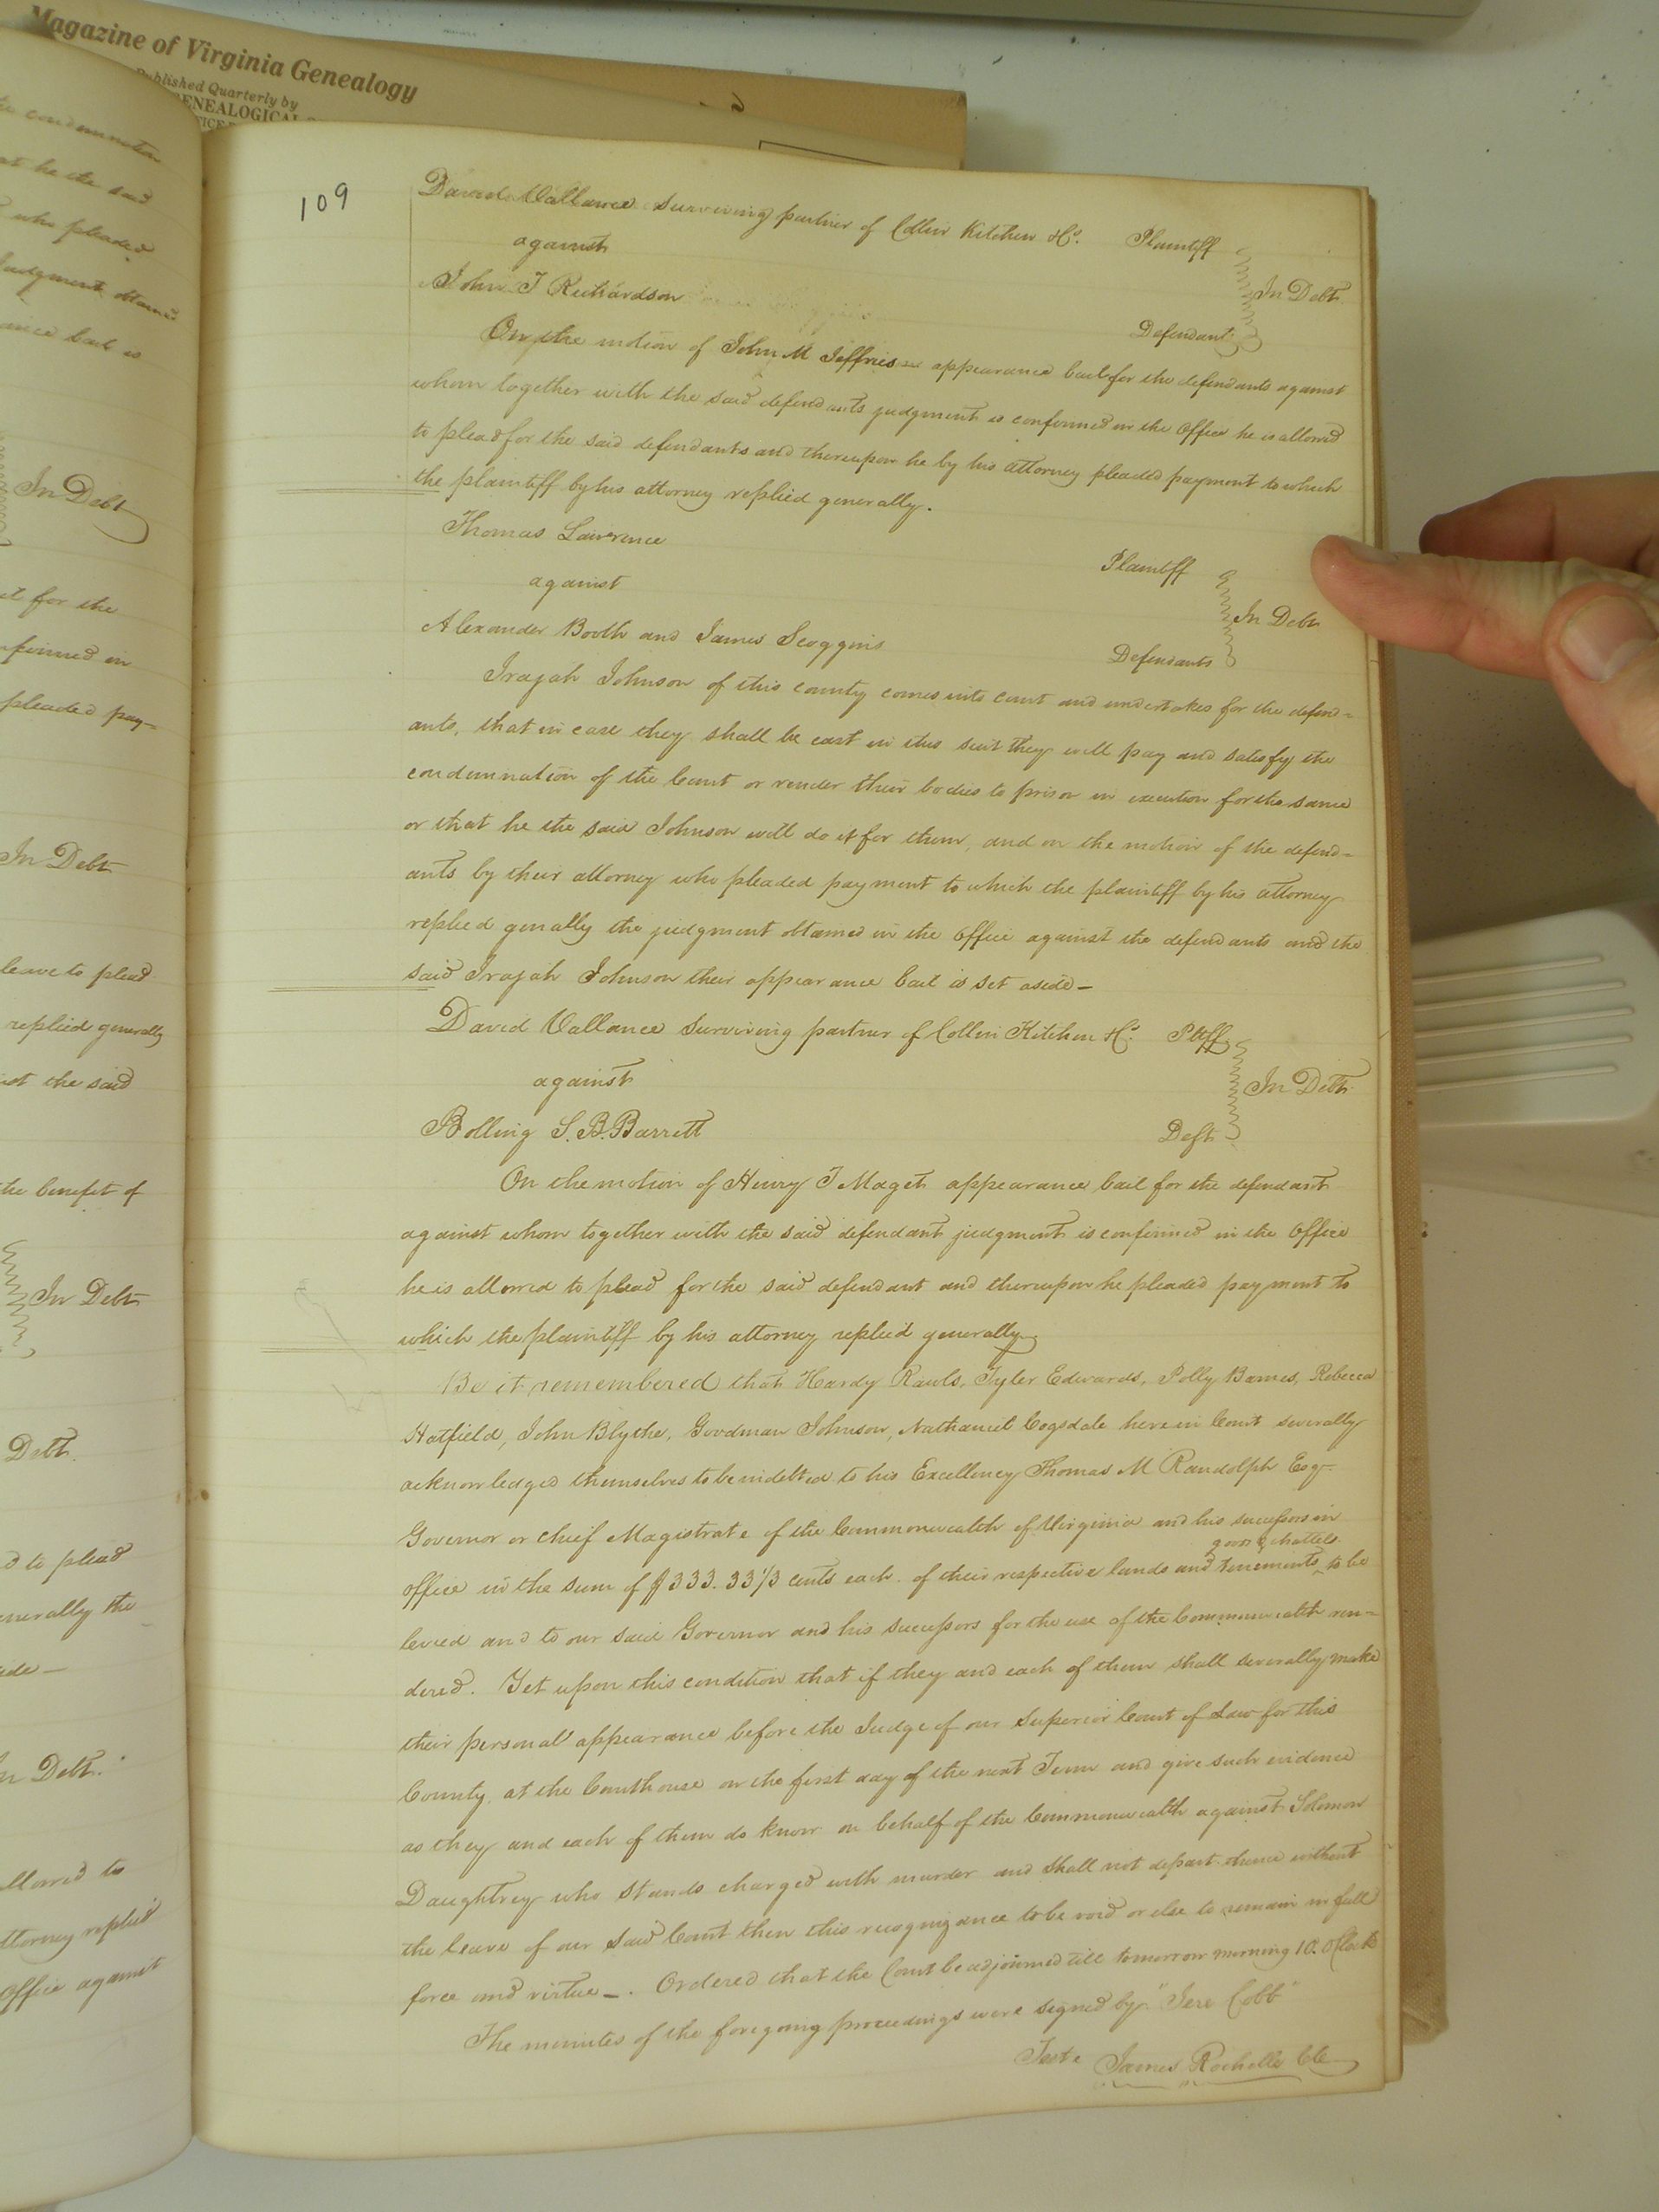 Magazine of Virginia Genealogy
Published Quarterly by
GENEALOGICAL
109
David Vallance surviving partner of Collin Kitchen & Co. Plaintiff
against
In Debt
John T Richardson
Defendant
On the motion of John M Jeffries appearance bail for the defendants against
whom together with the said defendants judgment is confirmed in the Office he is allowed
to plead for the said defendants and thereupon he by his attorney pleaded payment to which
the plaintiff by his attorney replied generally.
Thomas Lawrence
Plaintiff
against
In Debt
Alexander Booth and James Scoggins
Defendants
Irajah Johnson of this county comes into court and undertakes for the defend=
ants, that in case they shall be cast in this suit they will pay and satisfy the
condemnation of the Court or render their bodies to prison in execution for the same
or that he the said Johnson will do it for them, and on the motion of the defend=
ants by their attorney who pleaded payment to which the plaintiff by his attorney
replied genally the judgment obtained in the office against the defendants and the
said Irajah Johnson their appearance bail is set aside—
David Vallance surviving partner of Collin Kitchen & Co. Pltff
against
In Debt
Bolling S. B. Barrett
Deft
On the motion of Henry T Maget appearance bail for the defendant
against whom together with the said defendant judgment is confirmed in the Office
he is allowed to plead for the said defendant and thereupon he pleaded payment to
which the plaintiff by his attorney replied generally
Be it remembered that Hardy Rawls, Tyler Edwards, Polly Barnes, Rebecca
Hatfield, John Blythe, Goodman Johnson, Nathaniel Cogsdale here in Court severally
acknowledged themselves to be indebted to his Excellency Thomas M Randolph Esq
Governor or chief Magistrate of the Commonwealth of Virginia and his successors in
goods & chattels
office in the sum of $333.33 1/3 cents each of their respective lands and tenements to be
levied and to our said Governor and his successors for the use of the Commonwealth ren=
dered. Yet upon this condition that if they and each of them shall severally make
their personal appearance before the Judge of our Superior Court of Law for this
County, at the Courthouse on the first day of the next Term and give such evidence
as they and each of them do know on behalf of the Commonwealth against Solomon
Daughtrey who stands charged with murder and shall not depart thence without
the leave of our said Court then this recognizance to be void or else to remain in full
force and virtue—. Ordered that the Court be adjourned till tomorrow morning 10. OClock
The minutes of the foregoing proceedings were signed by "Jere Cobb"
Teste James Rochelle Clk
condemnation
at he the said
who pleaded
Judgment obtained
ance bail is
In Debt
for the
confirmed in
pleaded pay=
In Debt
leave to plead
replied generally
the said
the benefit of
In Debt
Debt.
to plead
enerally the
ide—
Debt.
allowed to
attorney replied
office against